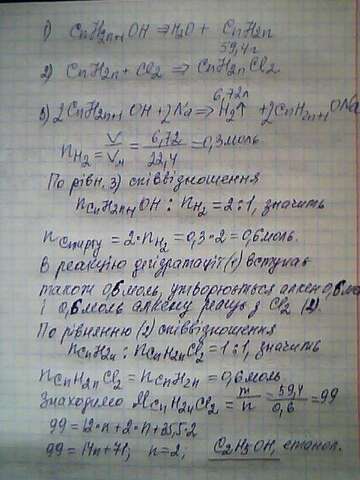 1) CnH2n+1OH ⇒ H2O + CnH2n
59,4г
2) CnH2n + Cl2 ⇒ CnH2nCl2
6,72л
3) 2CnH2n+1OH + 2Na ⇒ H2↑ + 2CnH2n+1ONa
nH2 = V/Vм = 6,72/22,4 = 0,3 моль
По рівн. 3) співвідношення
nCnH2n+1OH : nH2 = 2:1, значить
nспирту = 2·nH2 = 0,3·2 = 0,6 моль.
В реакцію дегідратації (1) вступає
також 0,6 моль, утворюється алкен 0,6 моль
і 0,6 моль алкену реагує з Cl2 (2).
По рівнянню (2) співвідношення
nCnH2n : nCnH2nCl2 = 1:1, значить
nCnH2nCl2 = nCnH2n = 0,6 моль.
Знаходимо MCnH2nCl2 = m/n = 59,4/0,6 = 99
99 = 12·n + 2·n + 35,5·2
99 = 14n + 71; n = 2; C2H5OH, етанол.